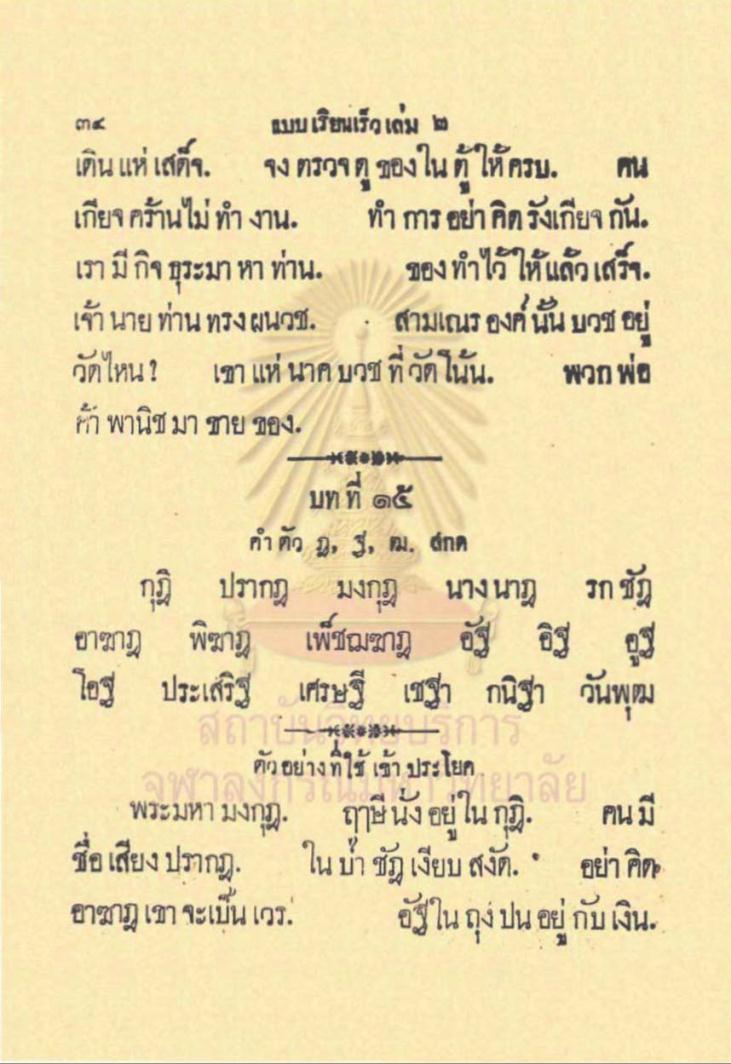 ๓๔ แบบ เรียนเร็ว เล่ม ๒
เดิน แห่ เสด็จ. จง ตรวจ ดู ของ ใน ตู้ ให้ ครบ. คน
เกียจ คร้าน ไม่ ทำ งาน. ทำ การ อย่า คิด รังเกียจ กัน.
เรา มี กิจ ธุระ มา หา ท่าน. ของ ทำ ไว้ ให้ แล้ว เสร็จ.
เจ้า นาย ท่าน ทรง ผนวช. สามเณร องค์ นั้น บวช อยู่
วัด ไหน? เขา แห่ นาค บวช ที่ วัด โน้น. พวก พ่อ
ค้า พานิช มา ขาย ของ.
บท ที่ ๑๕
คำ ตัว ฎ, ฐ, ฒ. สกด
กุฎิ ปรากฎ มงกุฎ นาง นาฎ รก ชัฎ
อาฆาฎ พิฆาฎ เพ็ชฌฆาฎ อัฐิ อิฐ อูฐ
โอฐ ประเสริฐ เศรษฐี เชฐา กนิฐา วันพุฒ
ตัว อย่าง ที่ ใช้ เข้า ประโยค
พระมหา มงกุฎ. ฤๅษี นั่ง อยู่ ใน กุฎิ. คน มี
ชื่อ เสียง ปรากฎ. ใน ป่า ชัฎ เงียบ สงัด. อย่า คิด
อาฆาฎ เขา จะ เป็น เวร. อัฐ ใน ถุง ปน อยู่ กับ เงิน.
สถาบันวิทยบริการ
จุฬาลงกรณ์มหาวิทยาลัย